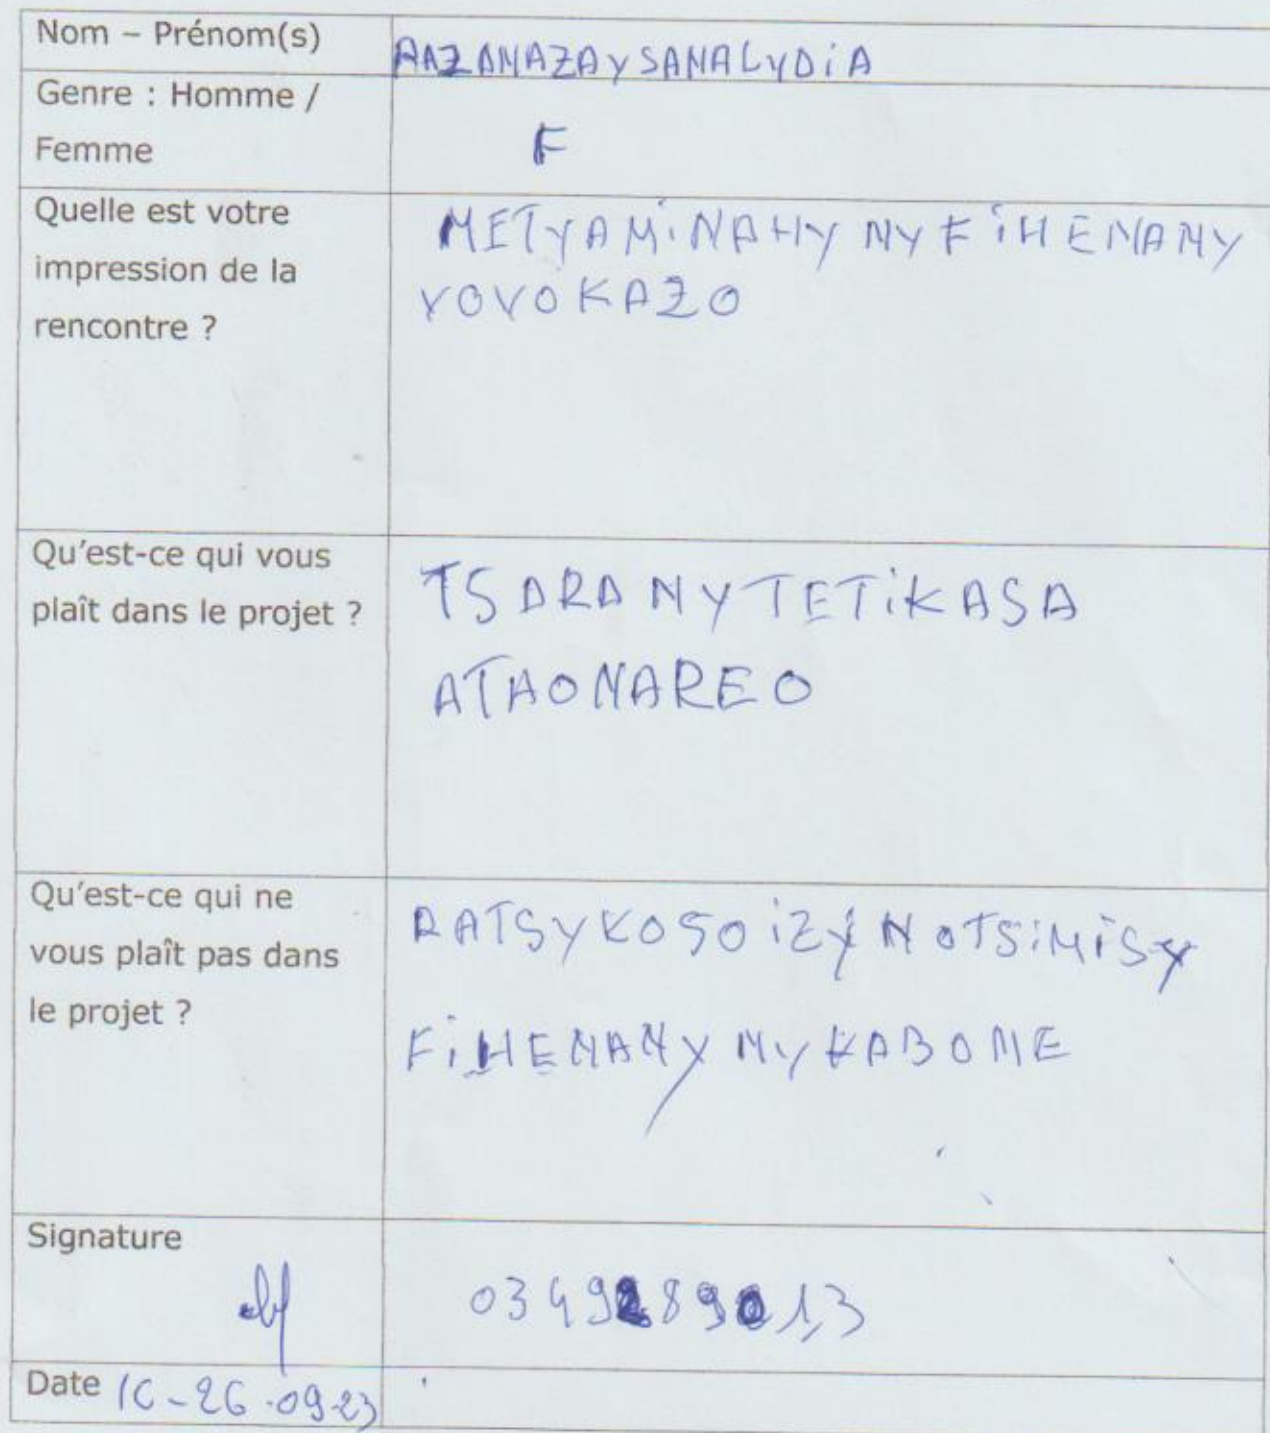 Nom – Prénom(s)
RAZANAZAYSANALYDiA
Genre : Homme /
Femme
F
Quelle est votre
impression de la
rencontre ?
METYAMiNAHY NY FiHENANY
VOVOKAZO
Qu'est-ce qui vous
plaît dans le projet ?
TSARA NY TETiKASA
ATAONAREO
Qu'est-ce qui ne
vous plaît pas dans
le projet ?
RATSY KOSO iZY NOTSiMiSY
FiHENANY NY KABONE
Signature
0349289013
Date 1C-26-09-23